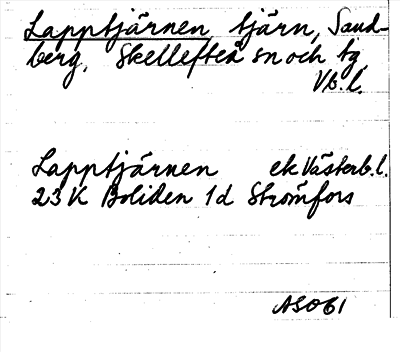 Lapptjärnen tjärn, Sand-
berg, Skellefteå sn och tg
Vb.l.
Lapptjärnen ek Västerb.l.
23 K Boliden 1d Strömfors
ASO61